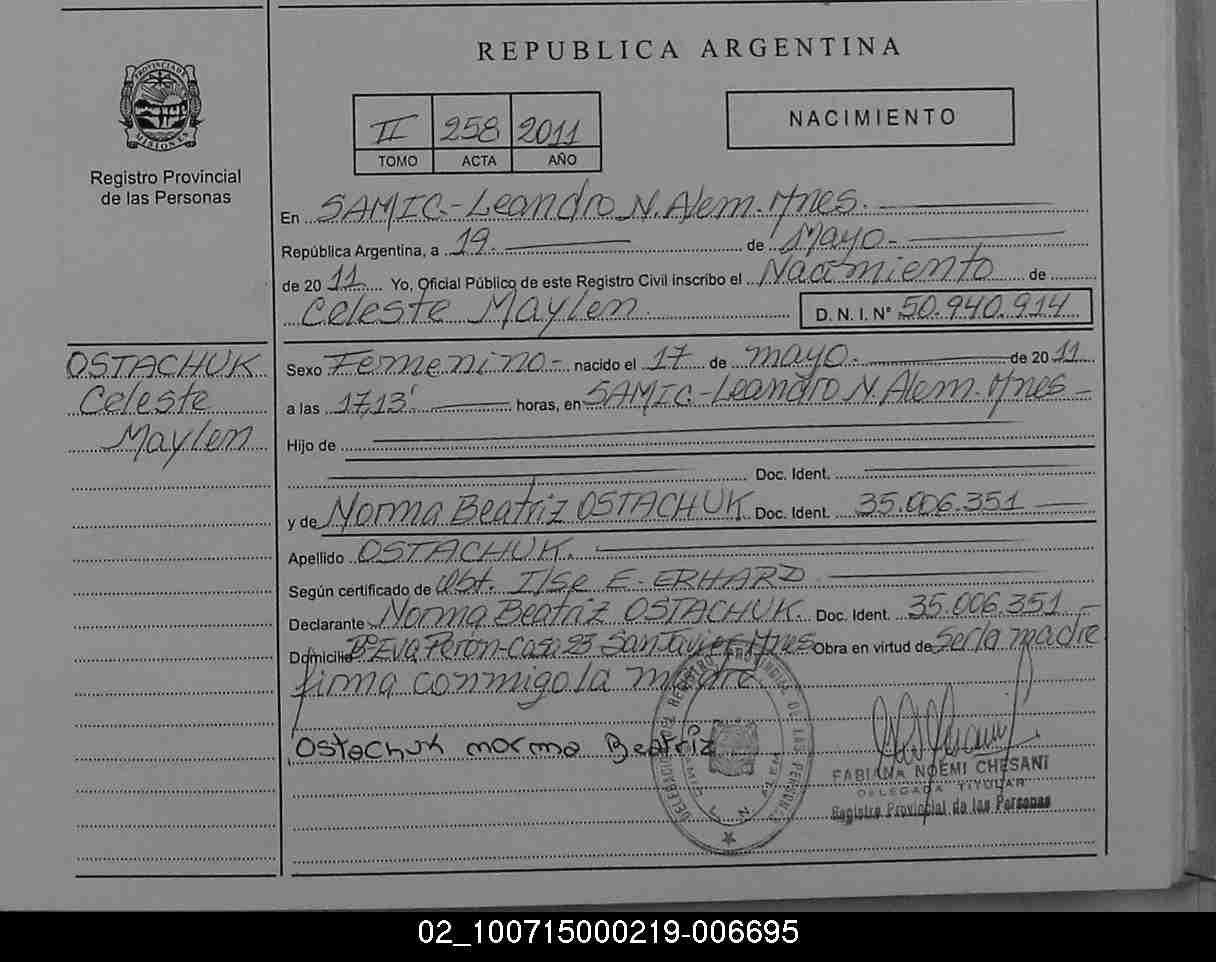 REPUBLICA ARGENTINA
PROVINCIA DE MISIONES
Registro Provincial
de las Personas
II 258 2011
TOMO ACTA AÑO
NACIMIENTO
En SAMIC.-Leandro N. Alem. Mnes.
República Argentina, a 19. de Mayo-
de 2011 Yo, Oficial Público de este Registro Civil inscribo el Nacimiento de
Celeste Maylen. D. N. I. N° 50.940.914
OSTACHUK
Celeste
Maylen
Sexo Femenino- nacido el 17 de mayo- de 2011
a las 17,13' horas, en SAMIC.-Leandro N. Alem. Mnes-
Hijo de
Doc. Ident.
y de Norma Beatriz OSTACHUK Doc. Ident. 35.006.351
Apellido OSTACHUK.
Según certificado de Obst. Ilse E. ERHARD
Declarante Norma Beatriz OSTACHUK Doc. Ident. 35.006.351
Domicilio B° Eva Perón-Casa 23 San Javier Mnes Obra en virtud de Ser la madre
firma conmigo la madre
Ostachuk norma Beatriz
DELEGACION DEL REGISTRO PROVINCIAL DE LAS PERSONAS
SAMIC L. N. ALEM
FABIANA NOEMI CHESANI
DELEGADA TITULAR
Registro Provincial de las Personas
02_100715000219-006695